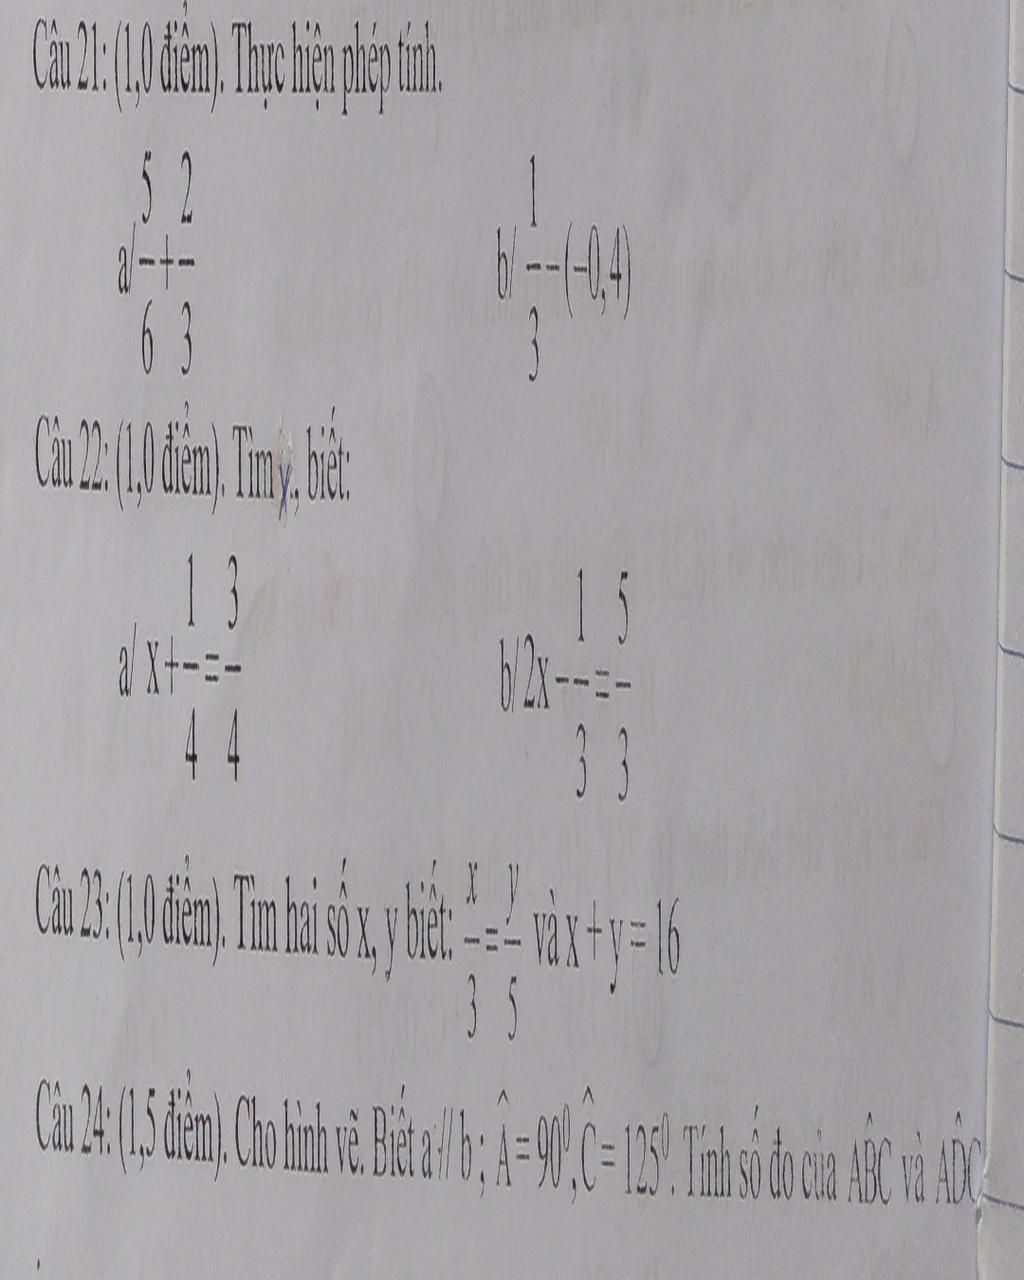 Câu 21: (1,0 điểm). Thực hiện phép tính.
a/ 5/6 + 2/3 b/ 1/3 - (-0,4)
Câu 22: (1,0 điểm). Tìm x, biết:
a/ x + 1/4 = 3/4 b/ 2x - 1/3 = 5/3
Câu 23: (1,0 điểm). Tìm hai số x, y biết: x/3 = y/5 và x + y = 16
Câu 24: (1,5 điểm). Cho hình vẽ. Biết a // b ; Â = 90⁰, Ĉ = 125⁰. Tính số đo của AB̂C và AD̂C